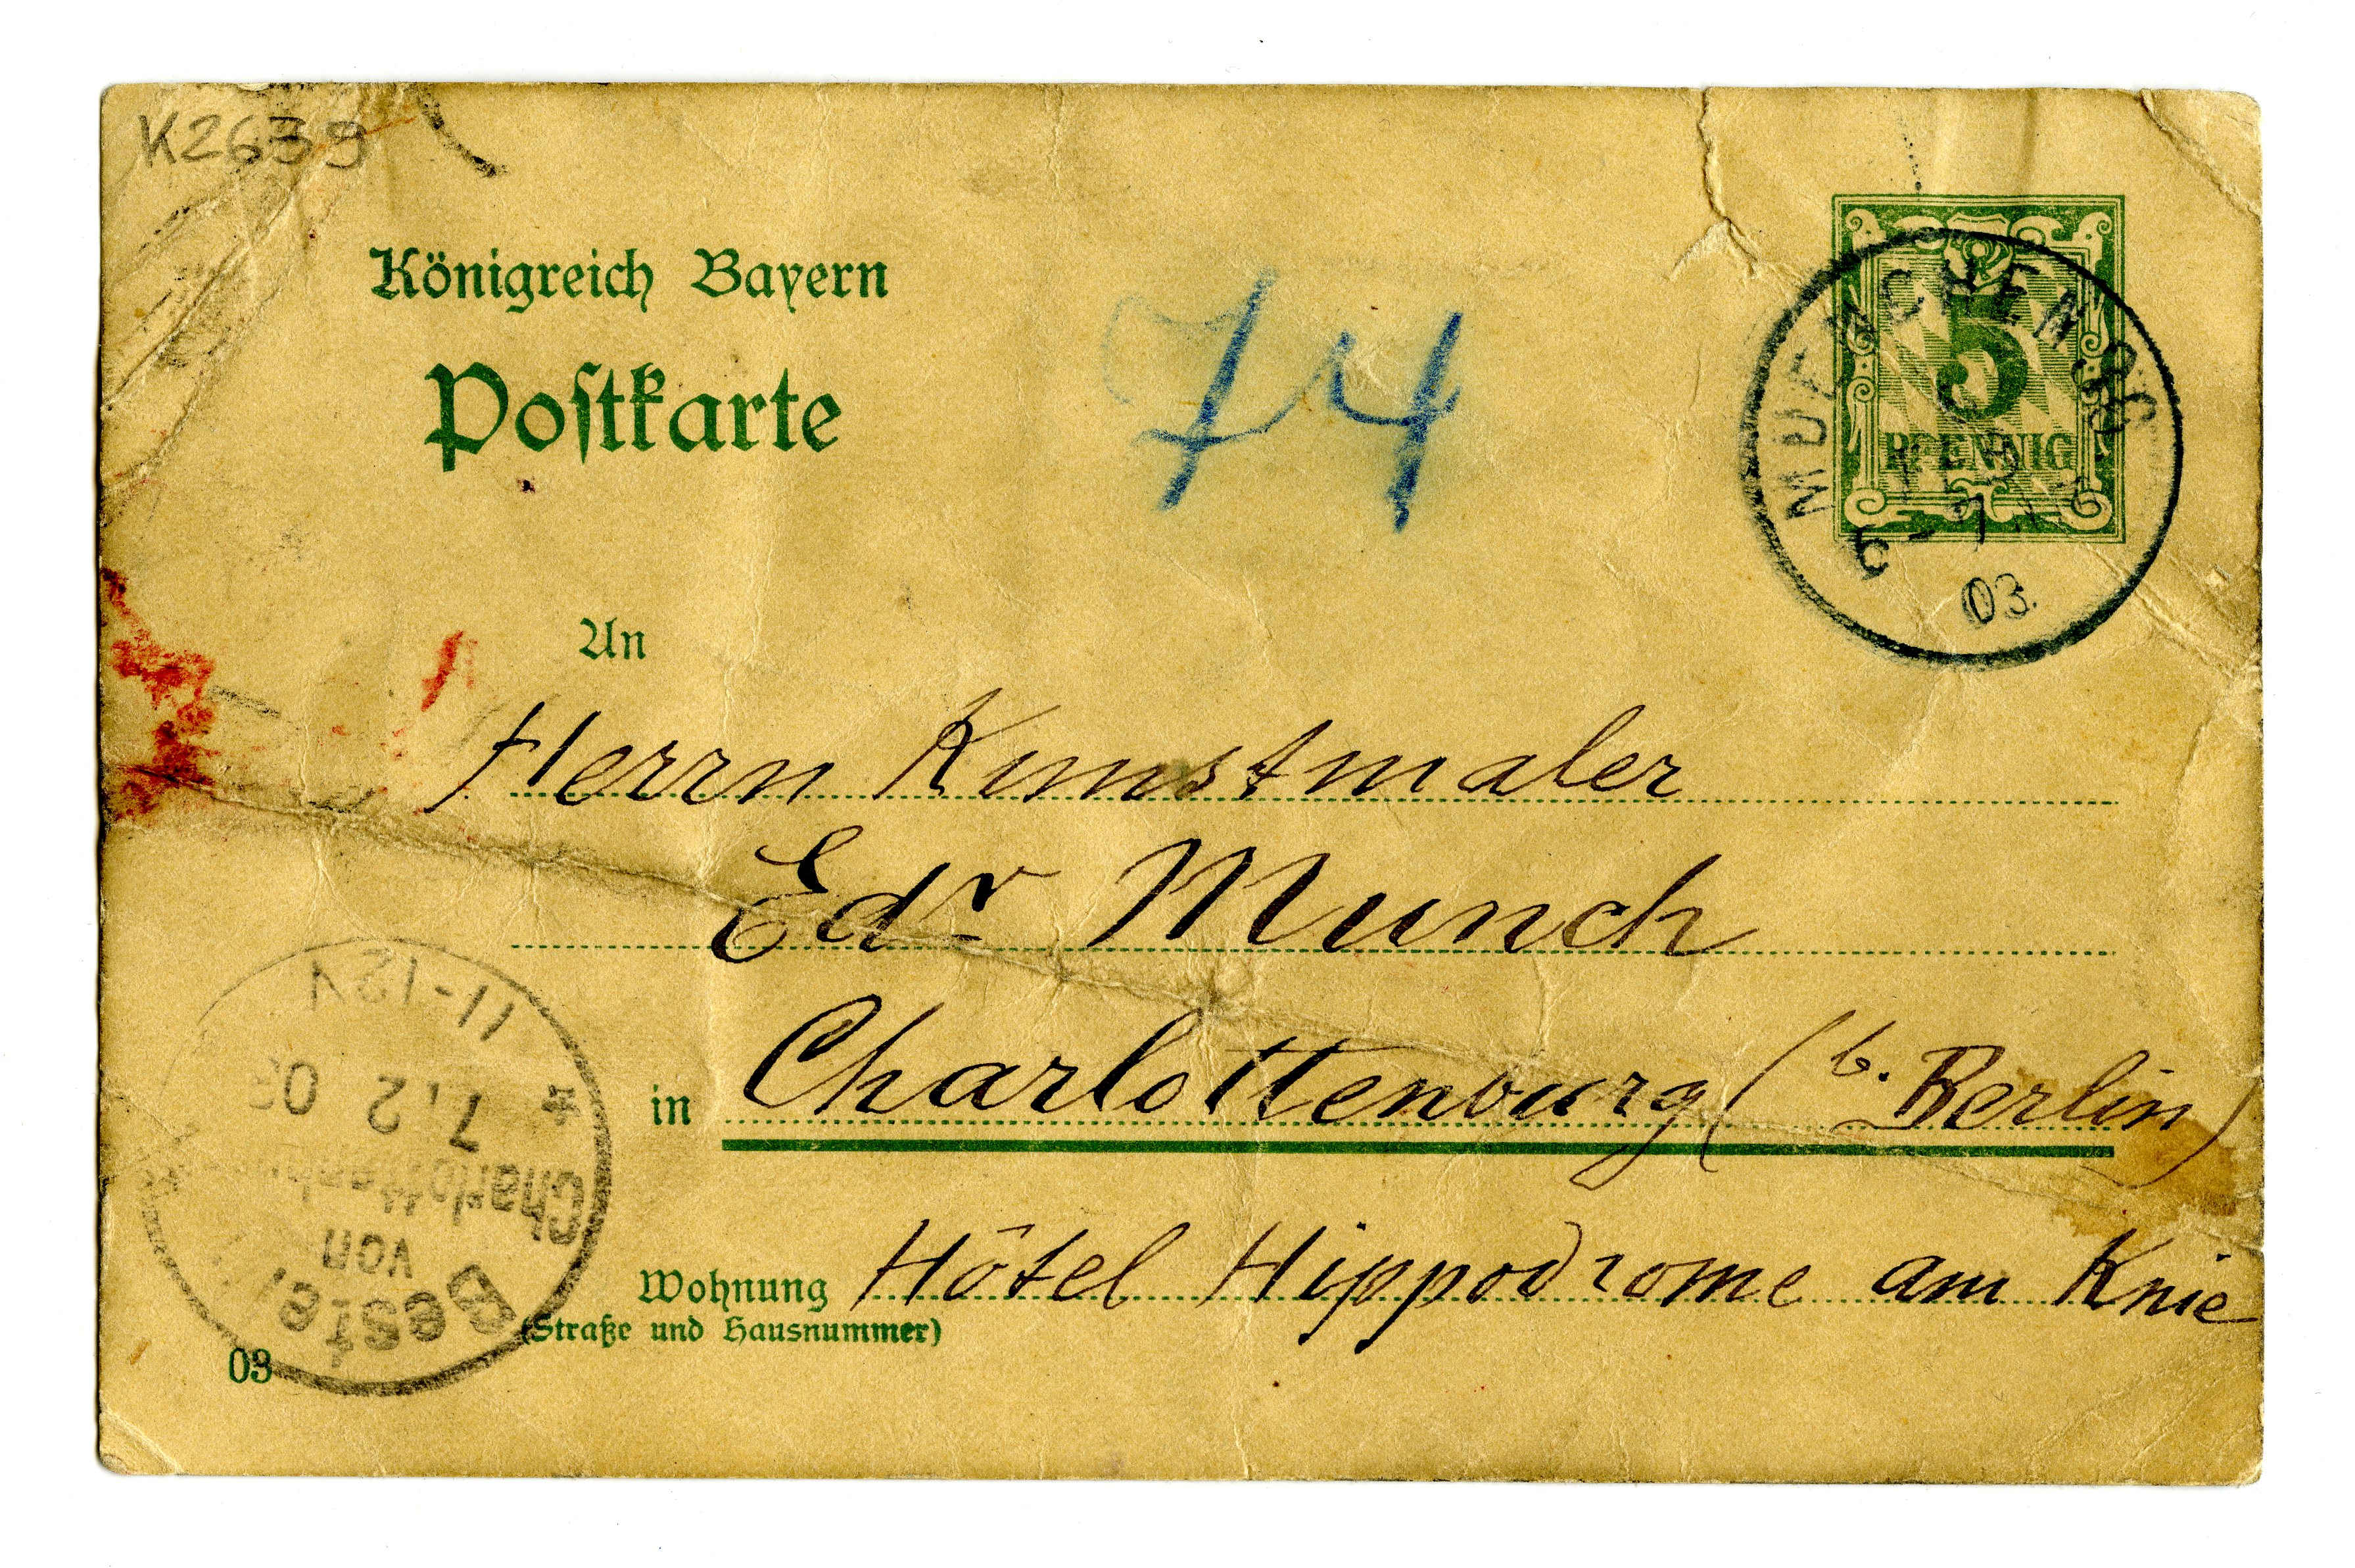 K2639
Königreich Bayern
Postkarte
74
5
PFENNIG
MUENCHEN
03.
An
Herrn Kunstmaler
Edv Munch
in Charlottenburg (b. Berlin)
Wohnung Hôtel Hippodrome am Knie
(Straße und Hausnummer)
03
Bestellt
von
Charlottenburg
7.2 03
11-12V